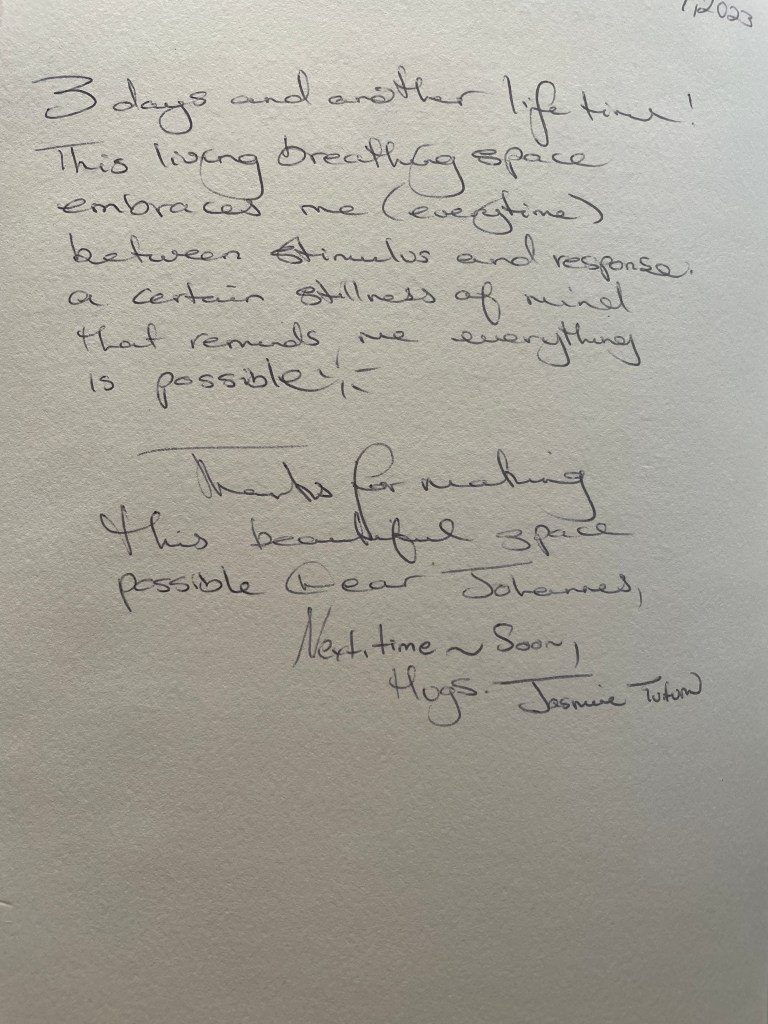 2023
3 days and another life time!
This living breathing space
embraces me (everytime)
between stimulus and response.
a certain stillness of mind
that reminds me everything
is possible
Thanks for making
this beautiful space
possible Dear Johannes,
Next time ~ Soon,
Hugs. Jasmine Tutum